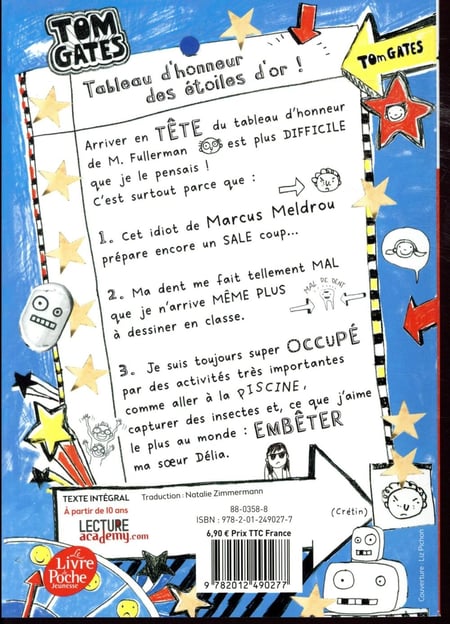 TOM
GATES
TOM GATES
Tableau d'honneur
des étoiles d'or !
Arriver en TÊTE du tableau d'honneur
de M. Fullerman est plus DIFFICILE
que je le pensais !
C'est surtout parce que :
1. Cet idiot de Marcus Meldrou
prépare encore un SALE coup...
2. Ma dent me fait tellement MAL
que je n'arrive MÊME PLUS
à dessiner en classe.
MAL DE DENT
3. Je suis toujours super OCCUPÉ
par des activités très importantes
comme aller à la PISCINE,
capturer des insectes et, ce que j'aime
le plus au monde : EMBÊTER
ma sœur Délia.
TEXTE INTÉGRAL
À partir de 10 ans
LECTURE
academy.com
Traduction : Natalie Zimmermann
88-0358-8
ISBN : 978-2-01-249027-7
6,90 € Prix TTC France
9 782012 490277
(Crétin)
Le
Livre
de
Poche
Jeunesse
Couverture : Liz Pichon